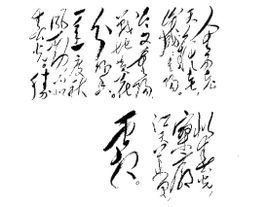 人生易老
天难老
岁岁重阳
今又重阳
战地黄花
分外香。
一年一度秋
风劲不似
春光。胜
似春光,
寥廓
江天万里
霜。